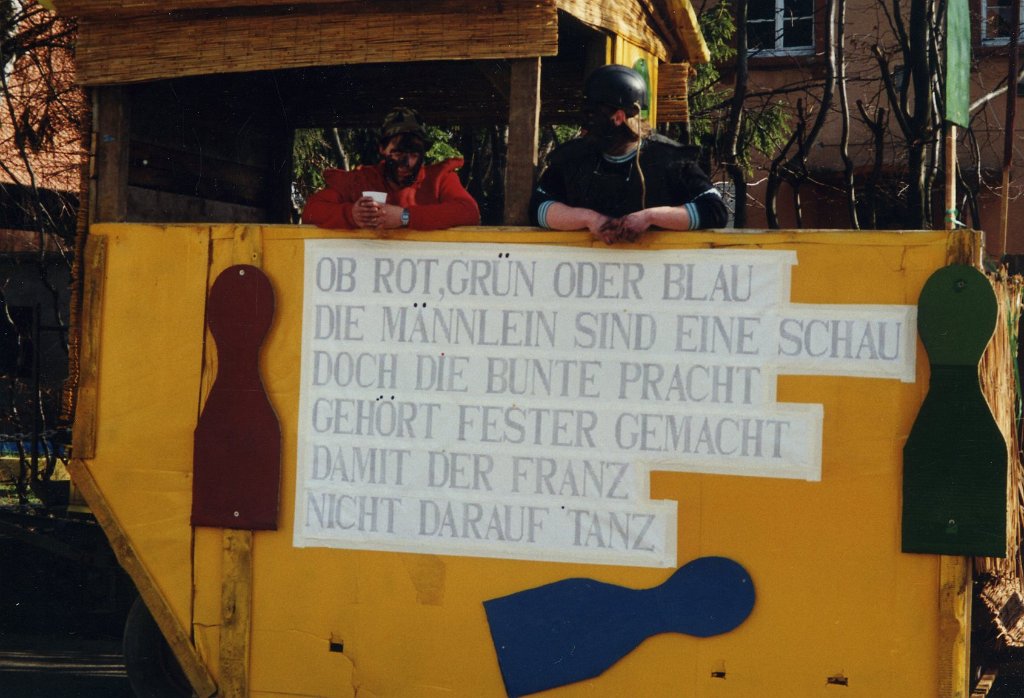 OB ROT, GRÜN ODER BLAU
DIE MÄNNLEIN SIND EINE SCHAU
DOCH DIE BUNTE PRACHT
GEHÖRT FESTER GEMACHT
DAMIT DER FRANZ
NICHT DARAUF TANZ